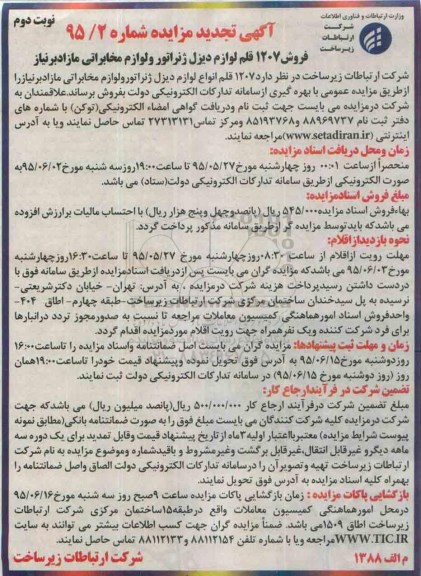 وزارت ارتباطات و فناوری اطلاعات
شرکت
ارتباطات
زیرساخت
نوبت دوم
آگهی تجدید مزایده شماره ۹۵/۲
فروش ۱۲۰۷ قلم لوازم دیزل ژنراتور ولوازم مخابراتی مازادبرنیاز
شرکت ارتباطات زیرساخت در نظر دارد ۱۲۰۷ قلم انواع لوازم دیزل ژنراتورولوازم مخابراتی مازادبرنیازرا
ازطریق مزایده عمومی با بهره گیری ازسامانه تدارکات الکترونیکی دولت بفروش برساند.علاقمندان به
شرکت درمزایده می بایست جهت ثبت نام ودریافت گواهی امضاء الکترونیکی(توکن) با شماره های
دفتر ثبت نام ۸۸۹۶۹۷۳۷ و ۸۵۱۹۳۷۶۸ ومرکز تماس۲۷۳۱۳۱۳۱ تماس حاصل نمایند ویا به آدرس
اینترنتی (www.setadiran.ir)مراجعه نمایند.
زمان ومحل دریافت اسناد مزایده:
منحصراً ازساعت ۰۰:۰۱ روز چهارشنبه مورخ۹۵/۰۵/۲۷ تا ساعت۱۹:۰۰روزسه شنبه مورخ۹۵/۰۶/۰۲به
صورت الکترونیکی ازطریق سامانه تدارکات الکترونیکی دولت(ستاد) می باشد.
مبلغ فروش اسنادمزایده:
بهاءفروش اسناد مزایده۵۴۵/۰۰۰ ریال (پانصدوچهل وپنج هزار ریال) با احتساب مالیات برارزش افزوده
می باشدکه بایدتوسط مزایده گر ازطریق سامانه مذکور پرداخت گردد.
نحوه بازدیدازاقلام:
مهلت رویت ازاقلام از ساعت ۸:۳۰روزچهارشنبه مورخ ۹۵/۰۵/۲۷ تا ساعت۱۶:۳۰روزچهارشنبه
مورخ۹۵/۰۶/۰۳ می باشدکه مزایده گران می بایست پس ازدریافت اسنادمزایده ازطریق سامانه فوق با
دردست داشتن رسیدپرداخت هزینه شرکت درمزایده ، به آدرس: تهران- خیابان دکترشریعتی-
نرسیده به پل سیدخندان ساختمان مرکزی شرکت ارتباطات زیرساخت-طبقه چهارم-اطاق ۴۰۴-
واحدفروش اسناد امورهماهنگی کمیسیون معاملات مراجعه تا نسبت به صدورمجوز تردد درانبارها
برای فرد شرکت کننده ویک نفرهمراه جهت رویت اقلام موردمزایده اقدام گردد.
زمان و مهلت ثبت پیشنهادها: مزایده گران می بایست اصل ضمانتنامه واسناد مزایده را تاساعت۱۶:۰۰
روزدوشنبه مورخ۹۵/۰۶/۱۵ به آدرس فوق تحویل نموده وپیشنهاد قیمت خودرا تاساعت۱۹:۰۰همان
روز (روز دوشنبه مورخ ۹۵/۰۶/۱۵) در سامانه تدارکات الکترونیکی دولت ثبت نمایند.
تضمین شرکت در فرآیندارجاع کار:
مبلغ تضمین شرکت درفرآیند ارجاع کار ۵۰۰/۰۰۰/۰۰۰ ریال(پانصد میلیون ریال) می باشدکه جهت
شرکت درمزایده کلیه شرکت کنندگان می بایست مبلغ فوق را به صورت ضمانتنامه بانکی(مطابق نمونه
پیوست شرایط مزایده) معتبربااعتبار اولیه۳ماه ازتاریخ پیشنهاد قیمت وقابل تمدید برای یک دوره سه
ماهه دیگرو غیرقابل انتقال،غیرقابل برگشت وغیرمشروط و باقیدشماره وموضوع مزایده به نام شرکت
ارتباطات زیرساخت تهیه وتصویرآن را درسامانه تدارکات الکترونیکی دولت الصاق واصل ضمانتنامه را
بهمراه کلیه اسناد مزایده به آدرس فوق تحویل نمایند.
بازگشایی پاکات مزایده : زمان بازگشایی پاکات مزایده ساعت ۹صبح روز سه شنبه مورخ۹۵/۰۶/۱۶
درمحل امورهماهنگی کمیسیون معاملات واقع درطبقه۱۵ساختمان مرکزی شرکت ارتباطات
زیرساخت اطاق ۱۵۰۹می باشد. ضمناً مزایده گران جهت کسب اطلاعات بیشتر می توانند به سایت
WWW.TIC.IRمراجعه ویا با شماره تلفن ۸۸۱۱۲۱۵۴ و ۸۸۱۱۲۱۳۳ تماس حاصل نمایند.
م الف ۱۳۸۸
شرکت ارتباطات زیرساخت